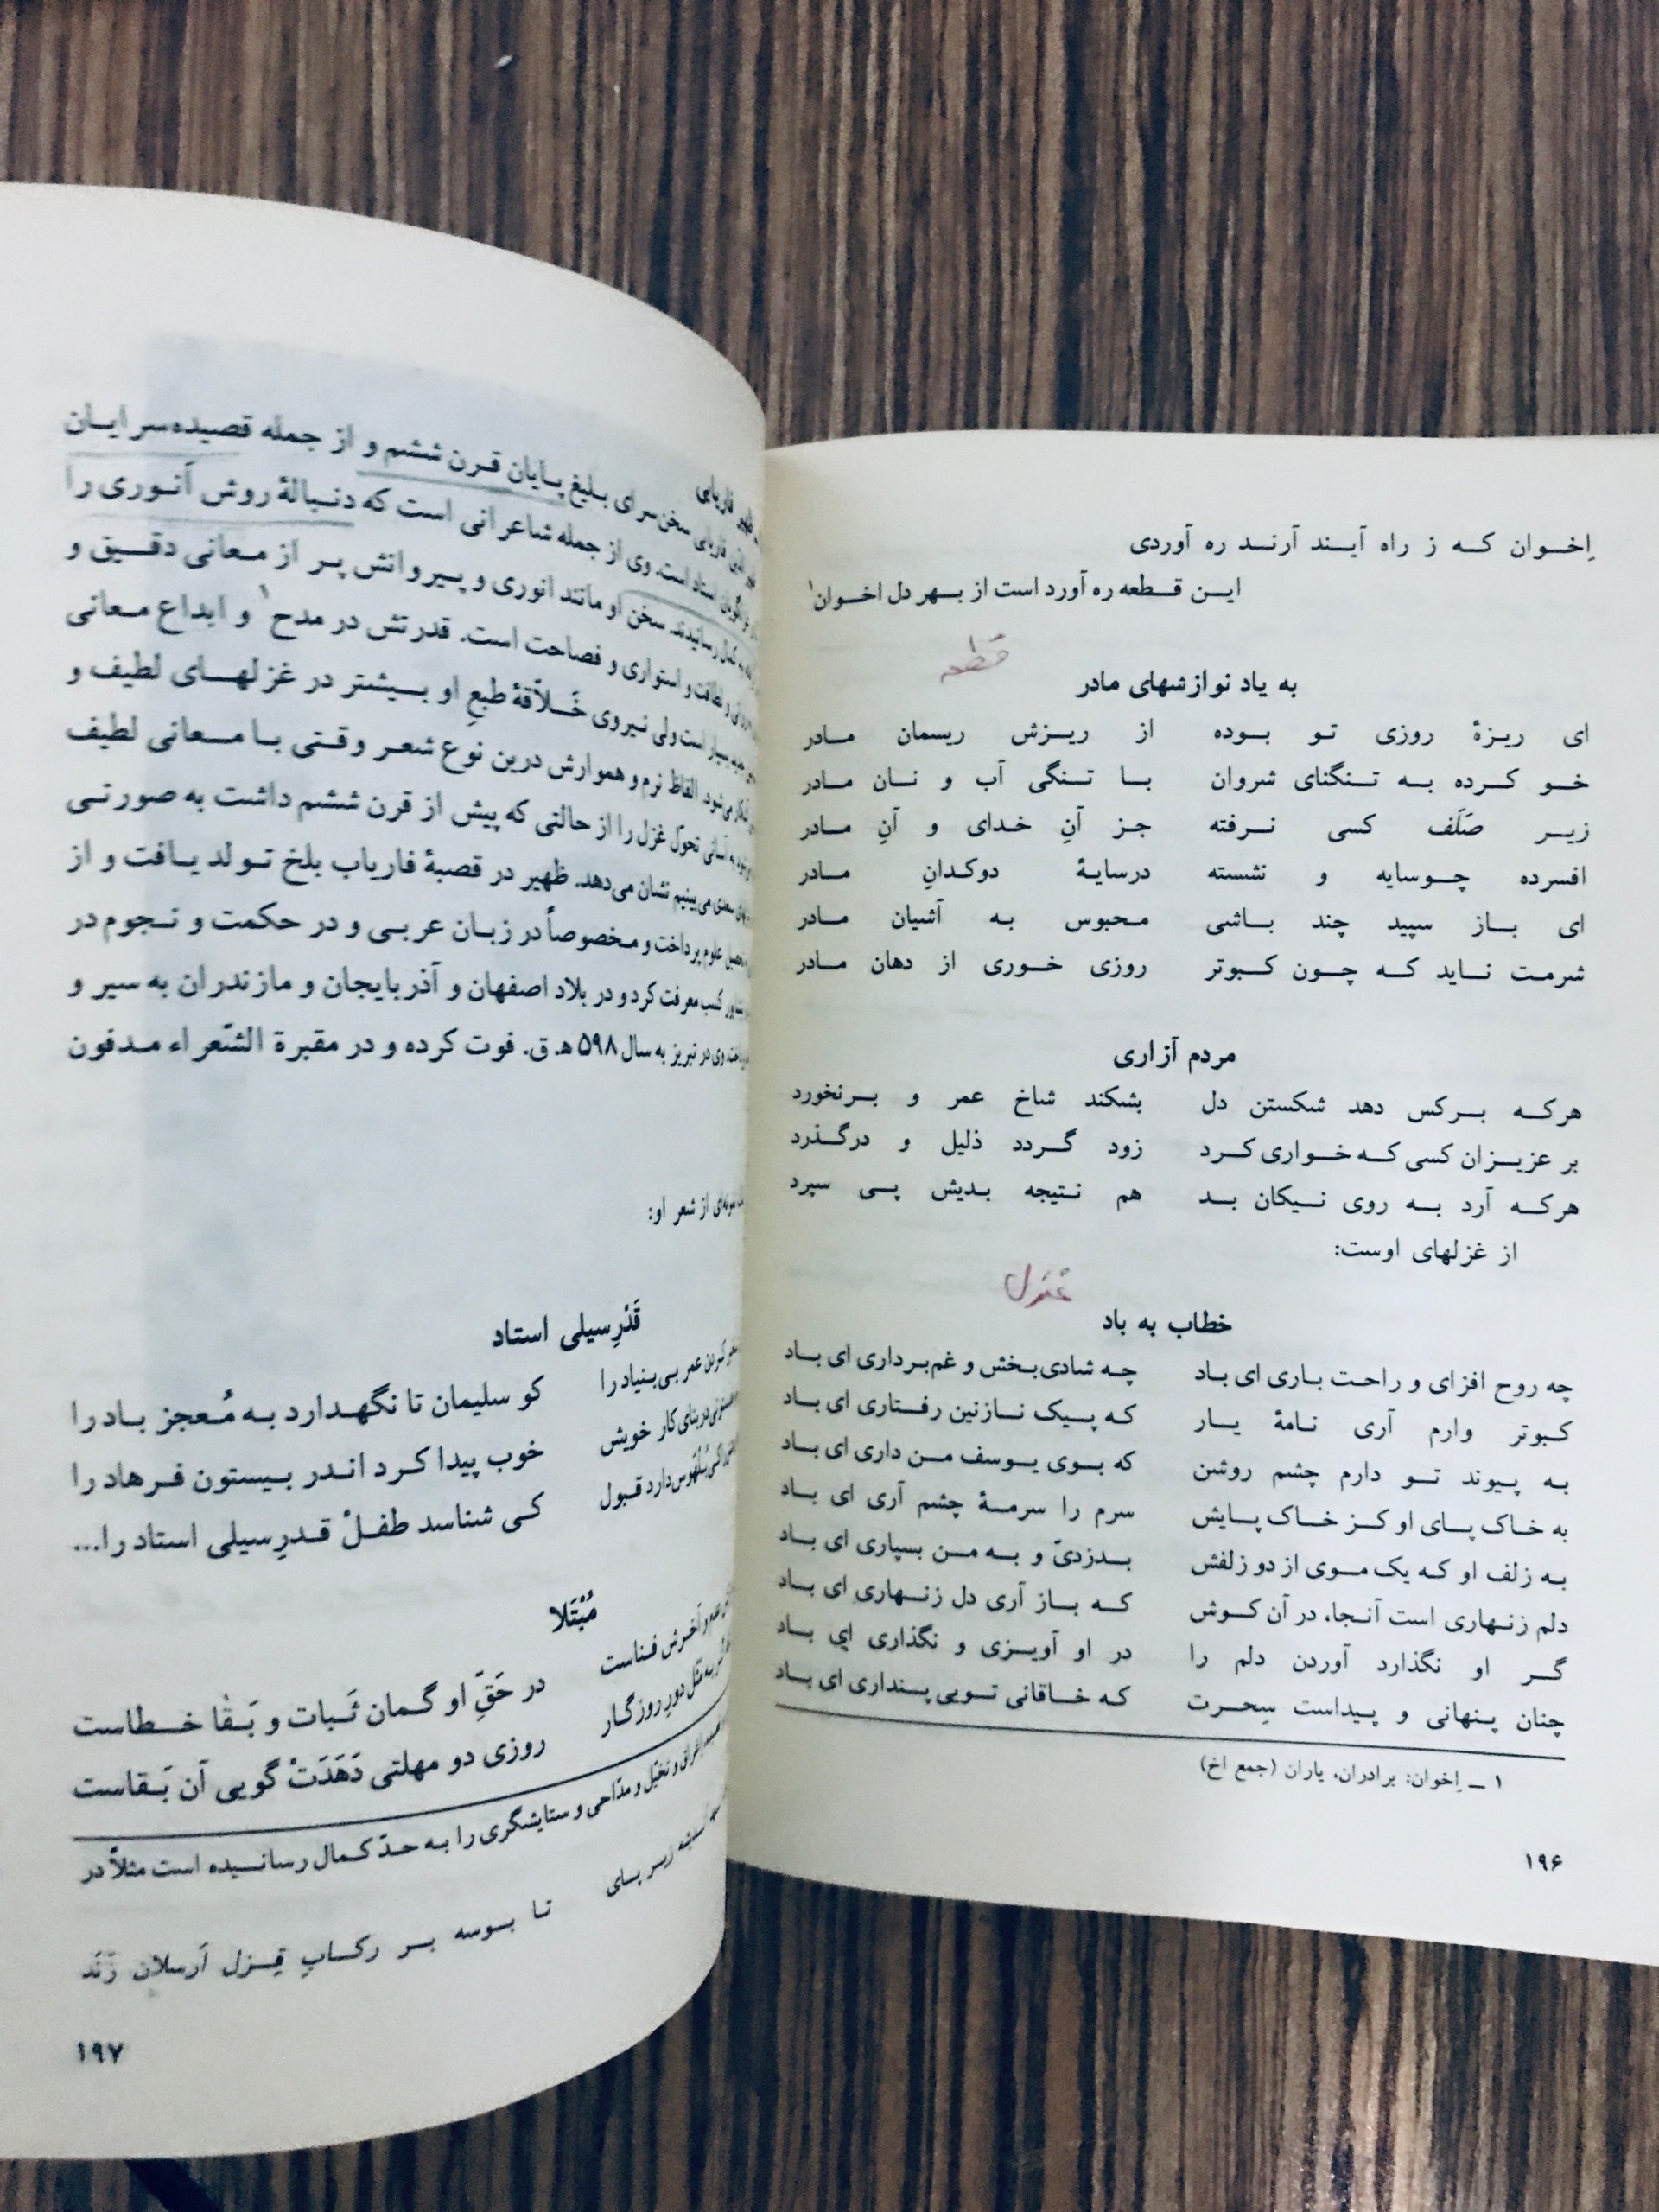 اِخوان که ز راه آیند آرند ره آوردی
این قطعه ره آورد است از بهر دل اخوان۱
قطعه
به یاد نوازشهای مادر
ای ریزهٔ روزی تو بوده از ریزش ریسمان مادر
خو کرده به تنگنای شروان با تنگی آب و نان مادر
زیر صَلَف کسی نرفته جز آنِ خدای و آنِ مادر
افسرده چوسایه و نشسته درسایهٔ دوکدانِ مادر
ای باز سپید چند باشی محبوس به آشیان مادر
شرمت ناید که چون کبوتر روزی خوری از دهان مادر
مردم آزاری
هرکه برکس دهد شکستن دل بشکند شاخ عمر و برنخورد
بر عزیزان کسی که خواری کرد زود گردد ذلیل و درگذرد
هرکه آرد به روی نیکان بد هم نتیجه بدیش پی سپرد
از غزلهای اوست:
غزل
خطاب به باد
چه روح افزای و راحت باری ای باد چه شادی‌بخش و غم‌برداری ای باد
کبوتر وارم آری نامهٔ یار که پیک نازنین رفتاری ای باد
به پیوند تو دارم چشم روشن که بوی یوسف من داری ای باد
به خاک پای او کز خاک پایش سرم را سرمهٔ چشم آری ای باد
به زلف او که یک موی از دو زلفش بدزدیّ و به من بسپاری ای باد
دلم زنهاری است آنجا، در آن کوش که باز آری دل زنهاری ای باد
گر او نگذارد آوردن دلم را در او آویزی و نگذاری ای باد
چنان پنهانی و پیداست سِحرت که خاقانی تویی پنداری ای باد
۱ ــ اِخوان: برادران، یاران (جمع اخ)
۱۹۶
فاریابی
فاریابی سخن‌سرای بلیغ پایان قرن ششم و از جمله قصیده‌سرایان
استاد است. وی از جمله شاعرانی است که دنبالهٔ روش اَنوری را
به کمال رسانیدند. سخن او مانند انوری و پیروانش پر از معانی دقیق و
و لطافت و استواری و فصاحت است. قدرتش در مدح۱ و ابداع معانی
بسیار است ولی نیروی خَلاّقهٔ طبعِ او بیشتر در غزلهای لطیف و
می‌شود. الفاظ نرم و هموارش درین نوع شعر وقتی با معانی لطیف
به آسانی تحوّل غزل را از حالتی که پیش از قرن ششم داشت به صورتی
سعدی می‌بینیم نشان می‌دهد. ظهیر در قصبهٔ فاریاب بلخ تولد یافت و از
تحصیل علوم پرداخت و مخصوصاً در زبان عربی و در حکمت و نجوم در
کسب معرفت کرد و در بلاد اصفهان و آذربایجان و مازندران به سیر و
وی در تبریز به سال ۵۹۸ هـ. ق. فوت کرده و در مقبرة الشّعراء مدفون
از شعر او:
قَدْرِ سیلی استاد
کردن عمر بی‌بنیاد را کو سلیمان تا نگهدارد به مُعجز باد را
در بنای کار خویش خوب پیدا کرد اندر بیستون فرهاد را
دارد قبول کی شناسد طفلْ قدرِ سیلی استاد را...
مُبْتَلا
و آخرش فناست در حَقِّ او گمان ثَبات و بَقا خطاست
دورِ روزگار روزی دو مهلتی دَهَدَتْ گویی آن بَقاست
اغراق و تخیّل و مدّاحی و ستایشگری را به حدّ کمال رسانیده است مثلاً در
اندیشه زیر پای تا بوسه بر رکابِ قِزل اَرسلان زَنَد
۱۹۷